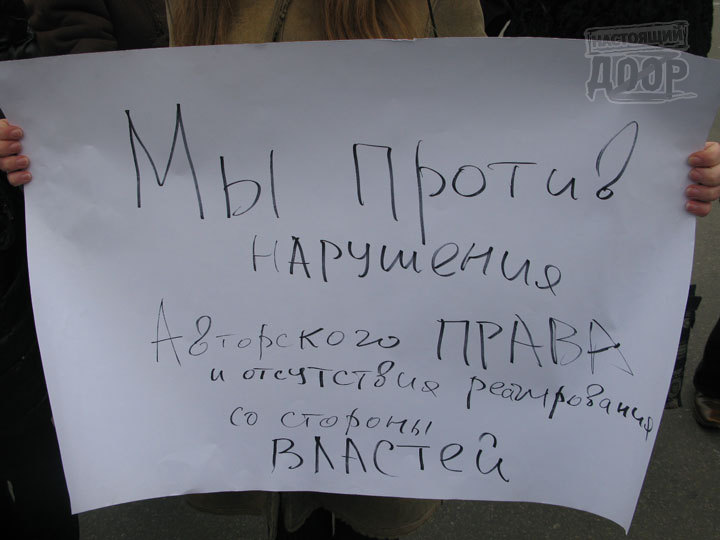 НАСТОЯЩИЙ
ДООР
Мы против
нарушения
Авторского ПРАВА
и отсутствия реагирования
со стороны
ВЛАСТЕЙ